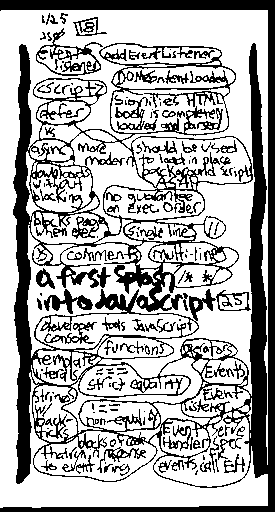 1/25
JS
event listener
addEventListener
DOMContentLoaded
<script>
signifies HTML body is completely loaded and parsed
defer
vs
async
more modern
should be used to load in place background scripts ASAP
downloads without blocking
no guarantee on exec. order
blocks page when exec.
single line
//
comments
multi-line
/* */
a first splash
into JavaScript [2.5]
developer tools JavaScript console
functions
operators
template literals
===
strict equality
Events
strings w/ back-ticks
!==
non-equality
Event listening
blocks of code that run in response to event firing
Event Handler
events, call EH